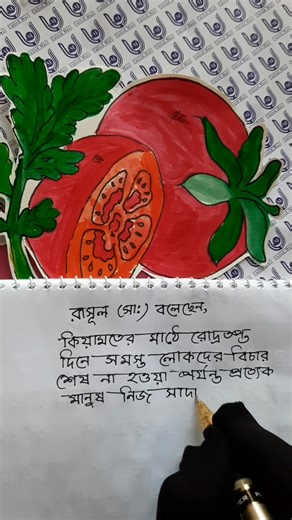 রাসূল (সা:) বলেছেন,
কিয়ামতের মাঠে রোদ্রতপ্ত
দিনে সমস্ত লোকদের বিচার
শেষ না হওয়া পর্যন্ত প্রত্যেক
মানুষ নিজ সাদা